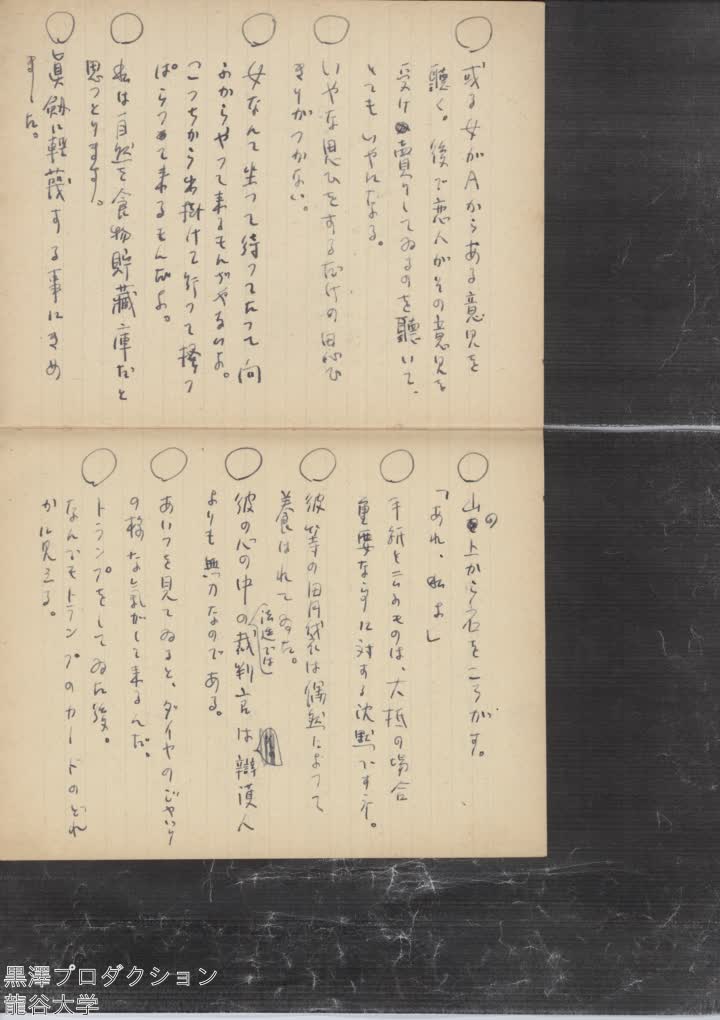 ○ 或る女がAからある意見を
聴く。後で恋人がその意見を
受け賣りしてゐるのを聴いて、
とてもいやになる。
○ いやな思ひをするだけの思ひで
きりがつかない。
○ 女なんて坐つて待つてたつて向
ふからやつて来るもんぢやないよ。
こつちから出掛けて行つて掻つ
ぱらつて来るもんだよ。
○ 私は自然を食物貯藏庫だと
思つとります。
○ 眞劔に軽蔑する事にきめ
ました。
○ 山の上から石をころがす。
「あれ、私よ」
○ 手紙と云ふものは、大抵の場合
重要ならずに対する沈黙ですネ。
○ 彼等の胃袋は偶然によつて
養はれてゐた。
○ 彼の心の中の裁判官は辯護人
法廷では
よりも無力なのである。
○ あいつを見てゐると、ダイヤの
の様な気がして来るんだ。
○ トランプをしてゐた後。
なんでもトランプのカードのどれ
かに見える。
黒澤プロダクション
龍谷大学